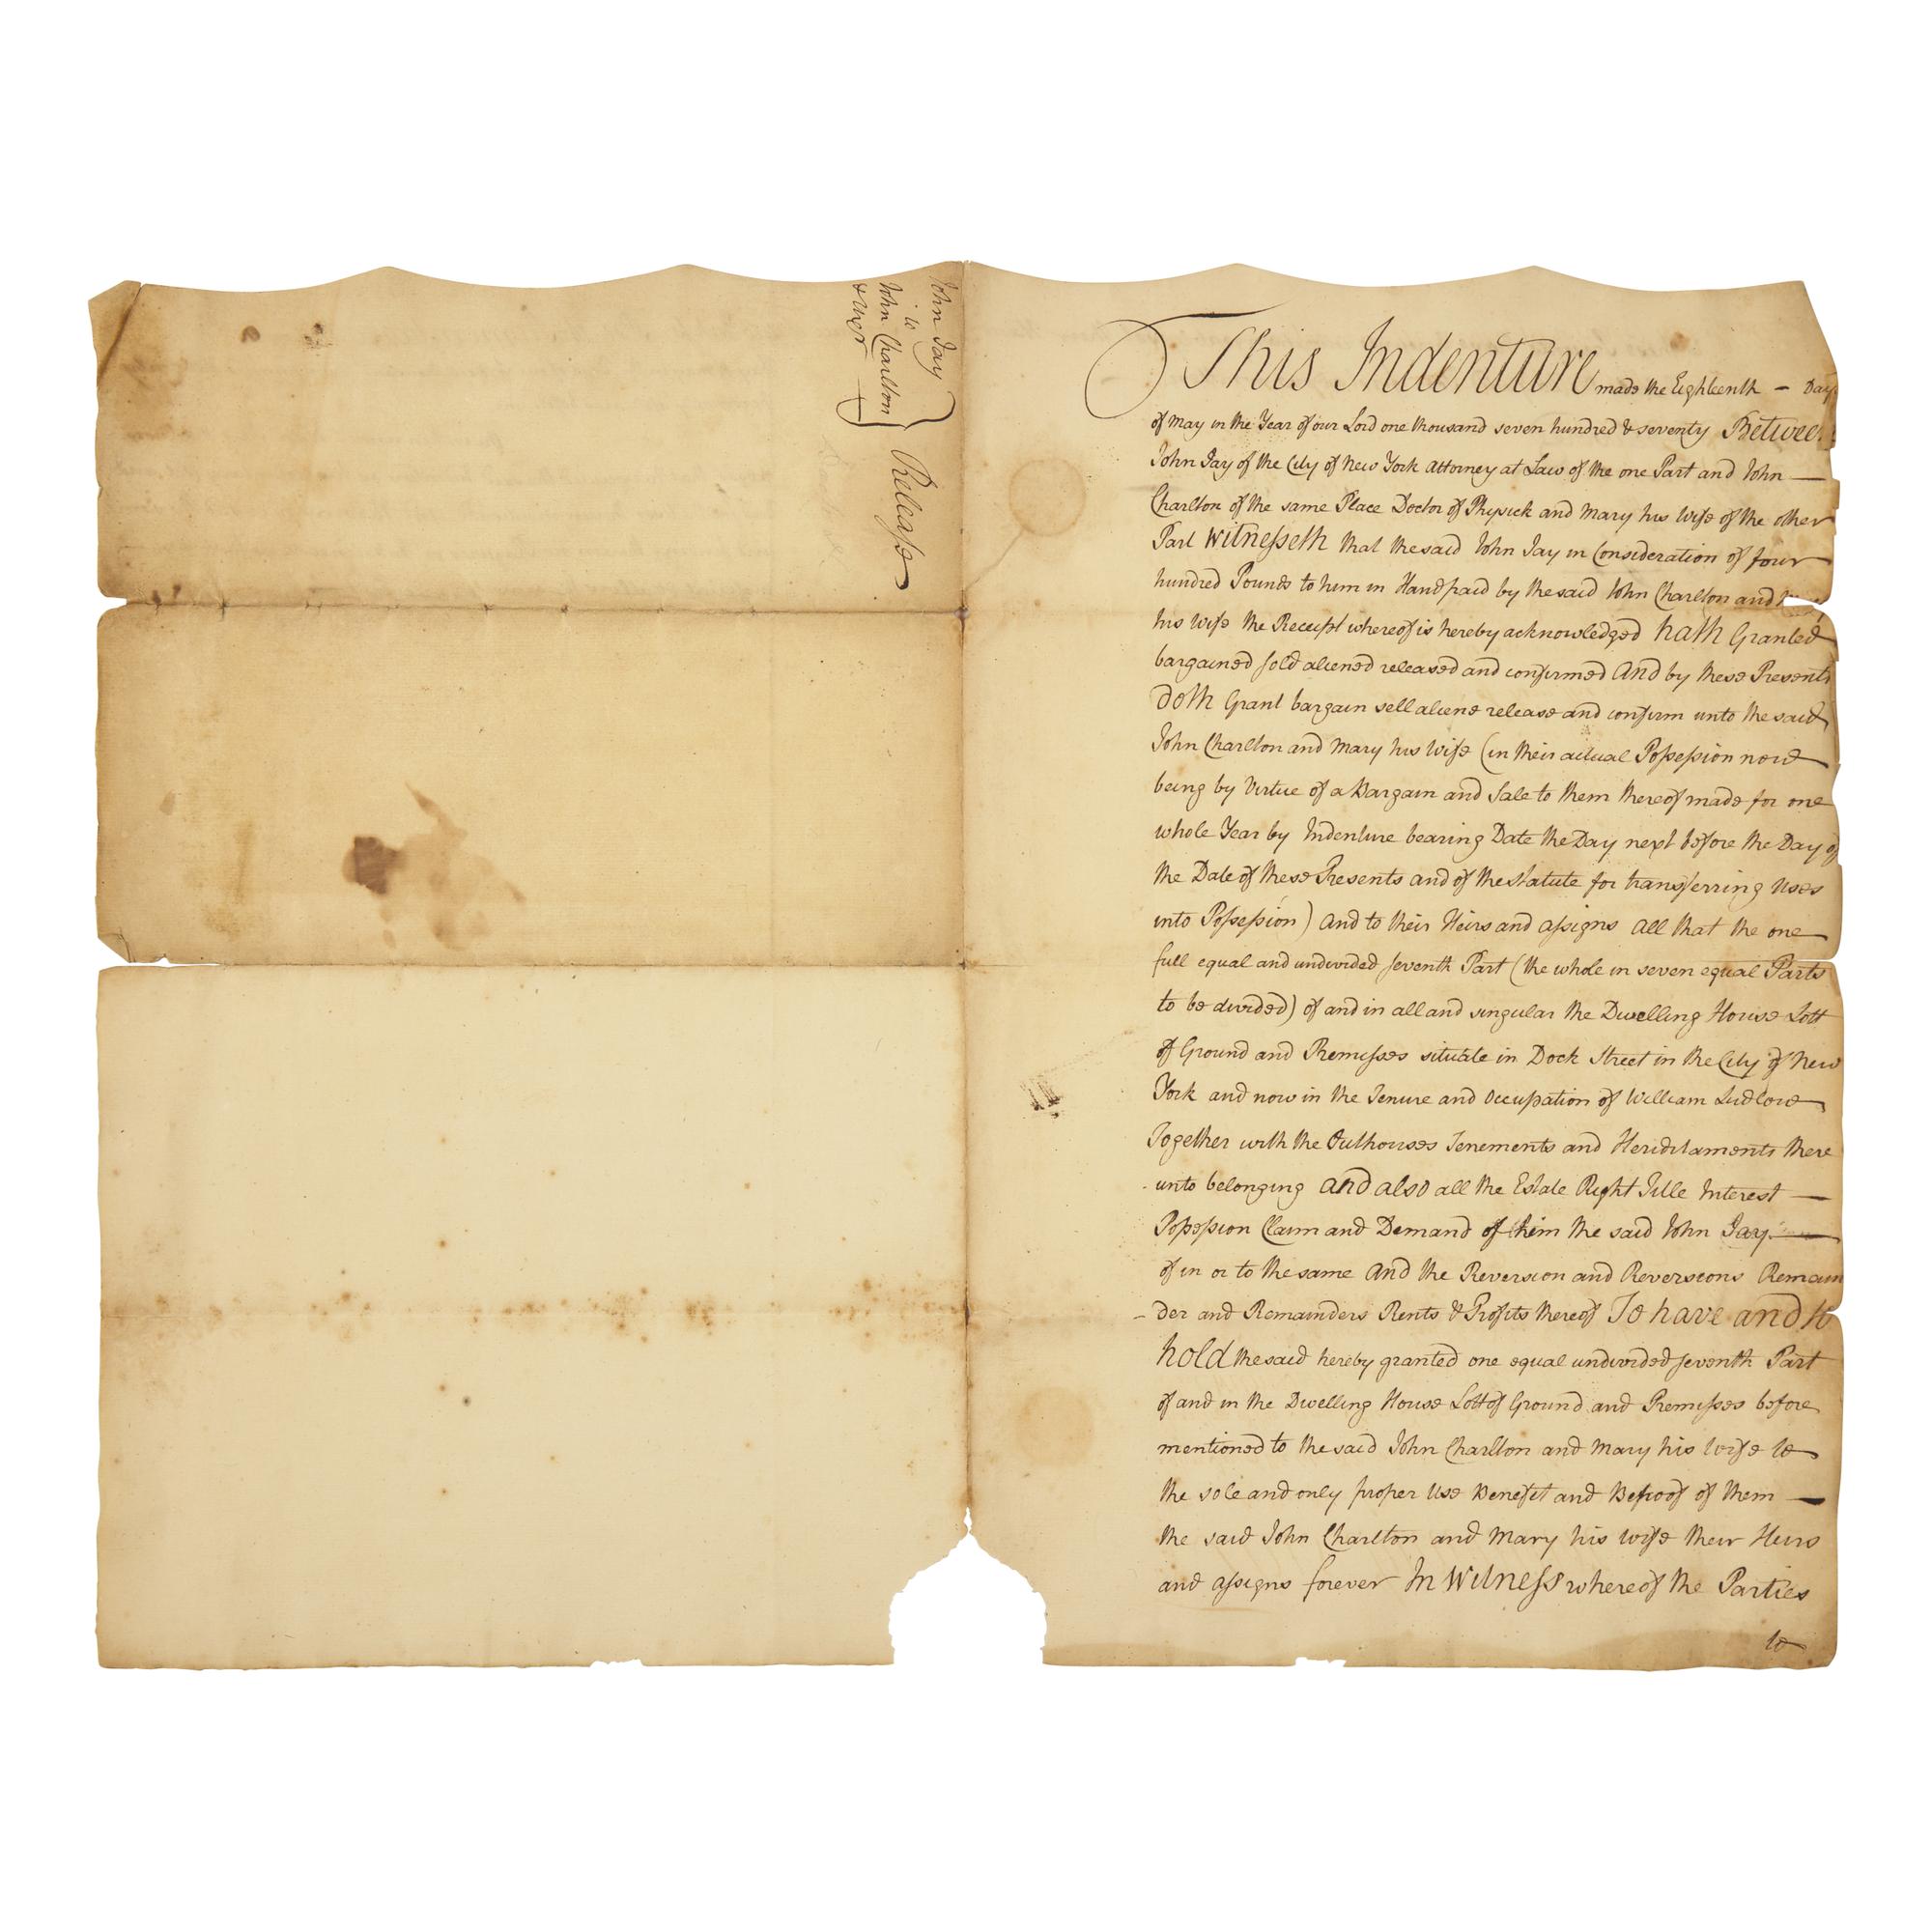 John Jay
to
John Charlton
& Uxor
Release
This Indenture made the Eighteenth – Day
of May in the Year of our Lord one thousand seven hundred & seventy Between
John Jay of the City of New York Attorney at Law of the one Part and John —
Charlton of the same Place Doctor of Physick and Mary his Wife of the other
Part Witnesseth that the said John Jay in Consideration of four
hundred Pounds to him in Hand paid by the said John Charlton and
his Wife the Receipt whereof is hereby acknowledged hath Granted
bargained sold aliened released and confirmed And by these Presents
doth Grant bargain sell aliene release and confirm unto the said
John Charlton and Mary his Wife (in their actual Possession now
being by Virtue of a Bargain and Sale to them thereof made for one
whole Year by Indenture bearing Date the Day next before the Day of
the Date of these Presents and of the Statute for transferring Uses
into Possession) And to their Heirs and Assigns All that the one
full equal and undivided seventh Part (the whole in seven equal Parts
to be divided) of and in all and singular the Dwelling House Lott
of Ground and Premisses situate in Dock Street in the City of New
York and now in the Tenure and Occupation of William Ludlow
Together with the Outhouses Tenements and Heriditaments there
unto belonging And also all the Estate Right Title Interest —
Possession Claim and Demand of him the said John Jay —
of in or to the same And the Reversion and Reversions Remain
- der and Remainders Rents & Profits thereof To have and to
hold the said hereby granted one equal undivided seventh Part
of and in the Dwelling House Lott of Ground and Premisses before
mentioned to the said John Charlton and Mary his Wife to
the sole and only proper Use Benefit and Behoof of them —
the said John Charlton and Mary his Wife their Heirs
and Assigns forever In Witness whereof the Parties
to